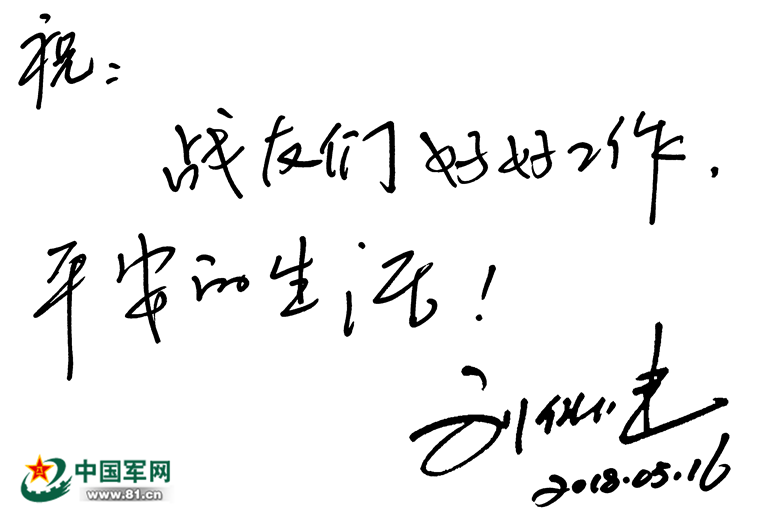 祝：
战友们好好工作．
平安的生活！
刘
2018.05.16
中国军网
www.81.cn